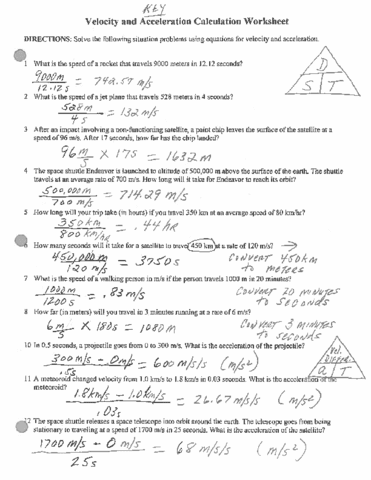 KEY
Velocity and Acceleration Calculation Worksheet
DIRECTIONS: Solve the following situation problems using equations for velocity and acceleration.
D
S T
1 What is the speed of a rocket that travels 9000 meters in 12.12 seconds?
9000m
12.12s = 742.57 m/s
2 What is the speed of a jet plane that travels 528 meters in 4 seconds?
528m
4s = 132 m/s
3 After an impact involving a non-functioning satellite, a paint chip leaves the surface of the satellite at a
speed of 96 m/s. After 17 seconds, how far has the chip landed?
96 m/s × 17s = 1632m
4 The space shuttle Endeavor is launched to altitude of 500,000 m above the surface of the earth. The shuttle
travels at an average rate of 700 m/s. How long will it take for Endeavor to reach its orbit?
500,000m
700 m/s = 714.29 m/s
5 How long will your trip take (in hours) if you travel 350 km at an average speed of 80 km/hr?
350km
800 km/hr = .44 hr
6 How many seconds will it take for a satellite to travel 450 km at a rate of 120 m/s? →
450,000m
120 m/s = 3750s
CONVERT 450km
to METERS
7 What is the speed of a walking person in m/s if the person travels 1000 m in 20 minutes?
1000m
1200s = .83 m/s
CONVERT 20 minutes
to SECONDS
8 How far (in meters) will you travel in 3 minutes running at a rate of 6 m/s?
6 m/s × 180s = 1080m
CONVERT 3 minutes
to SECONDS
10 In 0.5 seconds, a projectile goes from 0 to 300 m/s. What is the acceleration of the projectile?
300 m/s - 0 m/s
.5s = 600 m/s/s (m/s²)
Vel.
a T
11 A meteoroid changed velocity from 1.0 km/s to 1.8 km/s in 0.03 seconds. What is the acceleration of the
meteoroid?
1.8km/s - 1.0km/s
.03s = 26.67 m/s/s (m/s²)
12 The space shuttle releases a space telescope into orbit around the earth. The telescope goes from being
stationary to traveling at a speed of 1700 m/s in 25 seconds. What is the acceleration of the satellite?
1700 m/s - 0 m/s
25s = 68 m/s/s (m/s²)